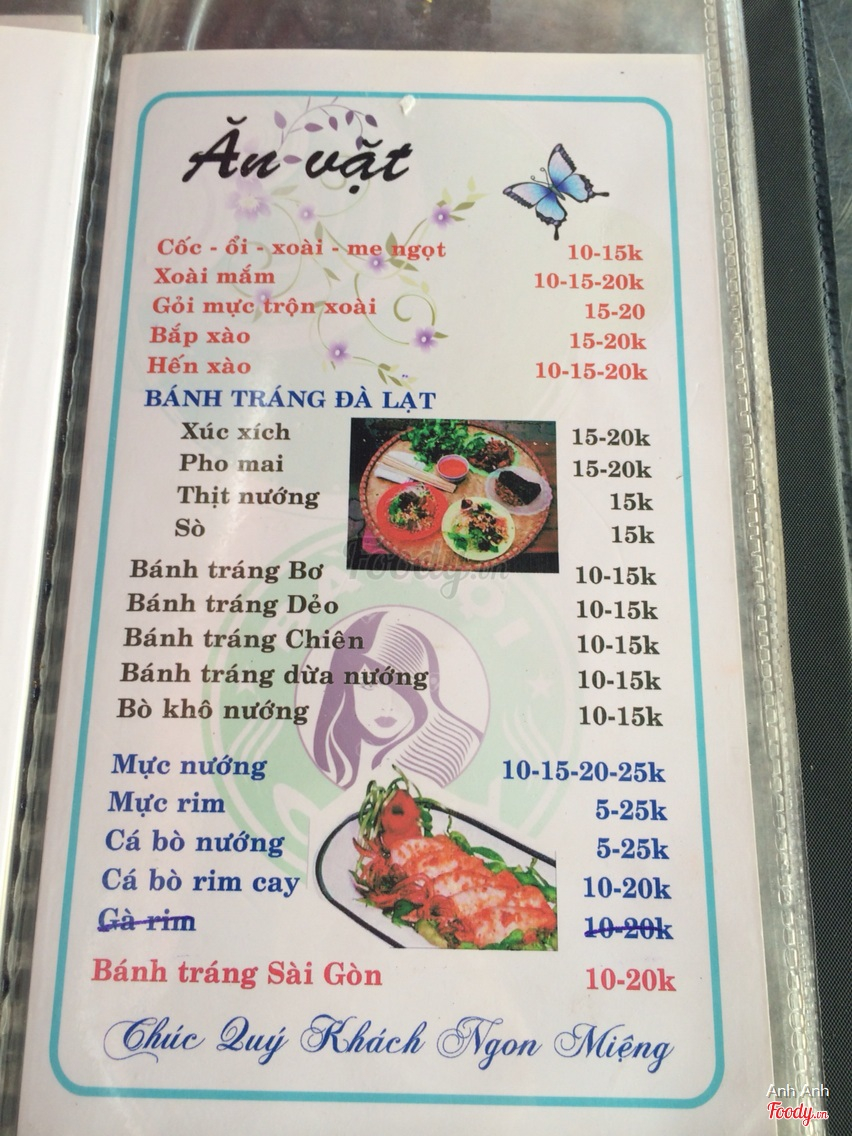 Ăn vặt
Cốc - ổi - xoài - me ngọt 10-15k
Xoài mắm 10-15-20k
Gỏi mực trộn xoài 15-20
Bắp xào 15-20k
Hến xào 10-15-20k
BÁNH TRÁNG ĐÀ LẠT
Xúc xích 15-20k
Pho mai 15-20k
Thịt nướng 15k
Sò 15k
Foody.vn
Bánh tráng Bơ 10-15k
Bánh tráng Dẻo 10-15k
Bánh tráng Chiên 10-15k
Bánh tráng dừa nướng 10-15k
Bò khô nướng 10-15k
Mực nướng 10-15-20-25k
Mực rim 5-25k
Cá bò nướng 5-25k
Cá bò rim cay 10-20k
Gà rim 10-20k
Bánh tráng Sài Gòn 10-20k
Chúc Quý Khách Ngon Miệng
Anh Anh
Foody.vn